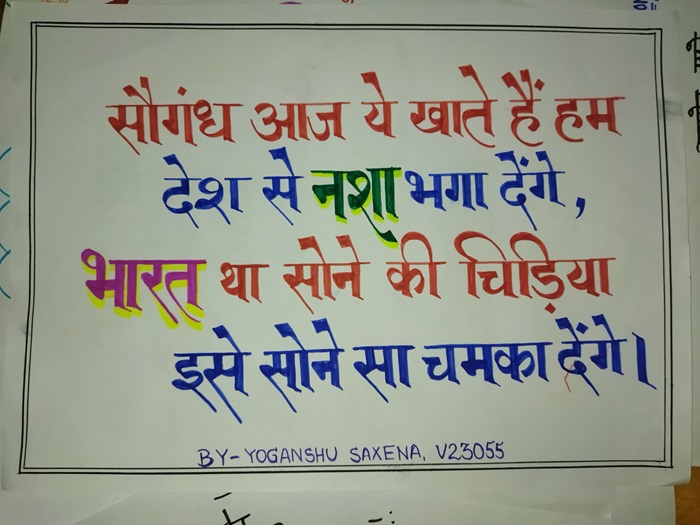 सौगंध आज ये खाते हैं हम
देश से नशा भगा देंगे,
भारत था सोने की चिड़िया
इसे सोने सा चमका देंगे।
BY-YOGANSHU SAXENA, V23055